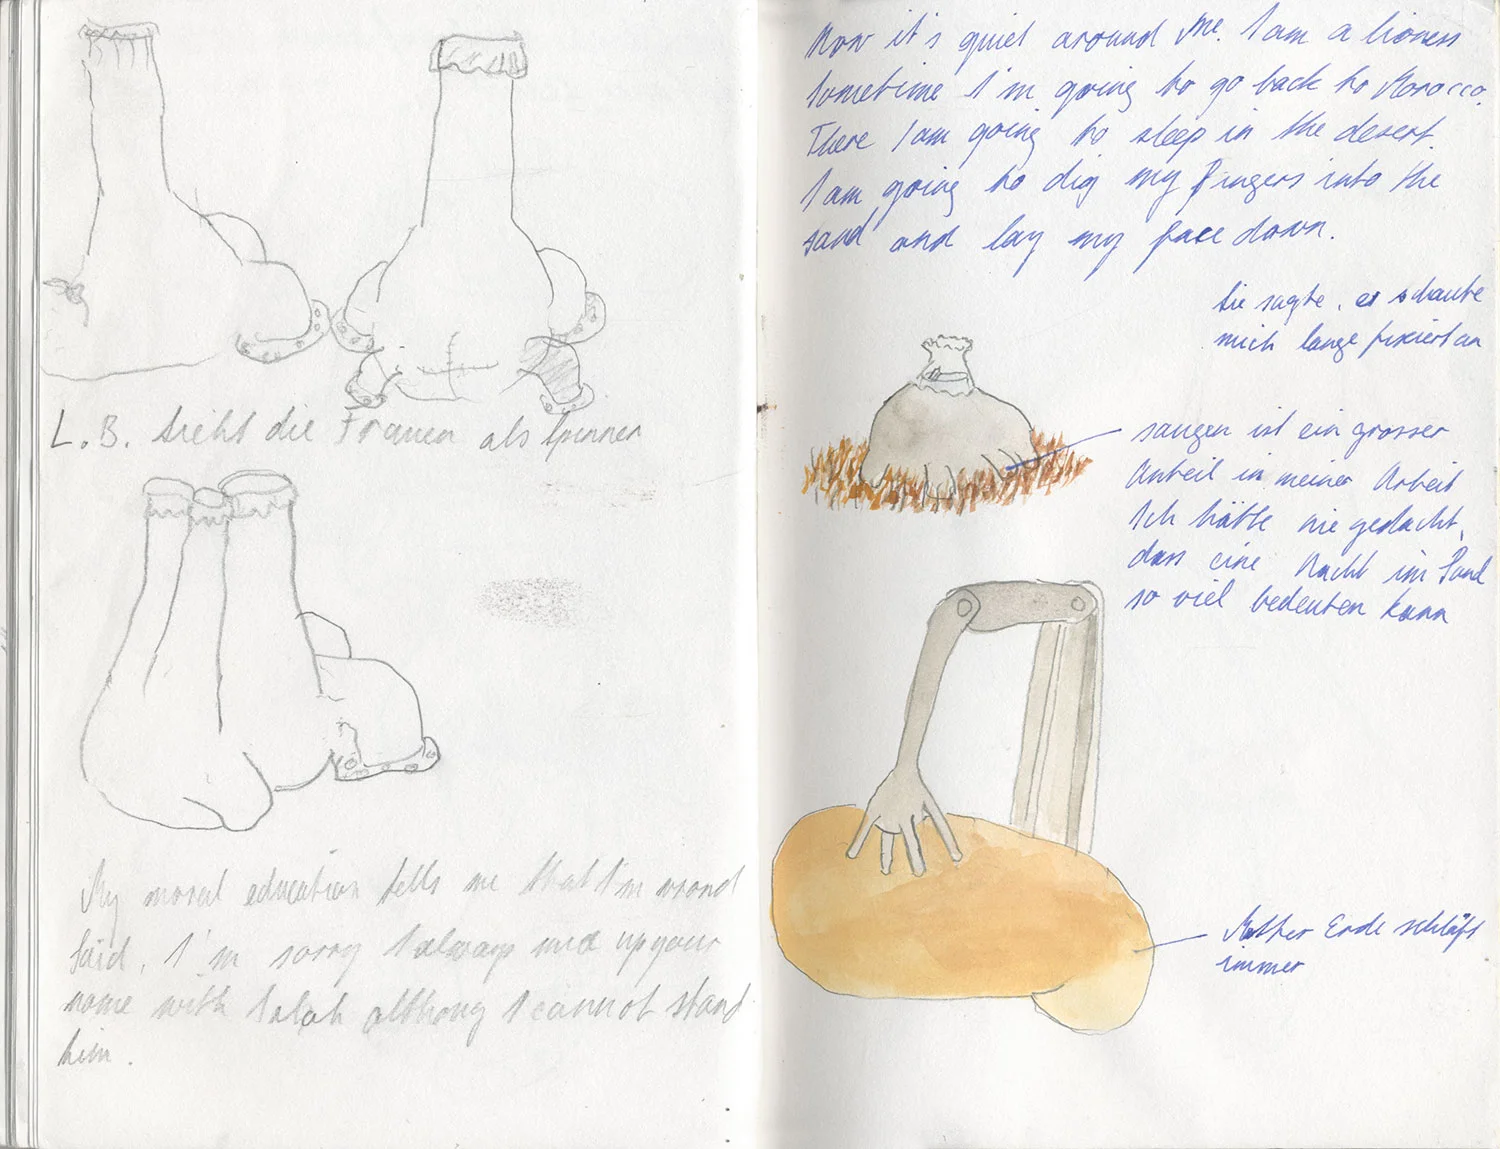 L. B. sieht die Frauen als Spinnen
My moral education tells me that I'm wrong
Saïd, I'm sorry I always mix up your
name with Salah although I cannot stand
him.
Now it's quiet around me. I am a lioness
sometime I'm going to go back to Morocco.
There I am going to sleep in the desert.
I am going to dig my fingers into the
sand and lay my face down.
Sie sagte, er schaute
mich lange fixiert an
saugen ist ein grosser
Anteil in meiner Arbeit
Ich hätte nie gedacht,
dass eine Nacht im Sand
so viel bedeuten kann
Mother Erde schläft
immer